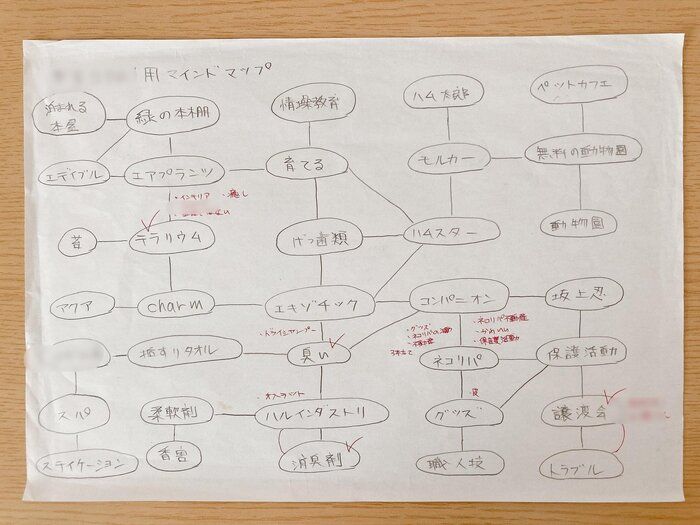 用マインドマップ
泊まれる
本屋
緑の本棚
情操教育
ハム太郎
ペットカフェ
エディブル
エアプランツ
育てる
モルカー
無料の動物園
・インテリア ・癒し
苔
テラリウム
げっ歯類
ハムスター
動物園
アクア
charm
エキゾチック
コンパニオン
坂上忍
・ドライシャンプー
・グッズ
・ネコリパ不動産
・かわいい
・保護活動
癒すリタオル
臭い
ネコリパ
保護活動
・オスラバット
・皮
スパ
柔軟剤
ハルインダストリ
グッズ
譲渡会
ステイケーション
香害
消臭剤
職人技
トラブル